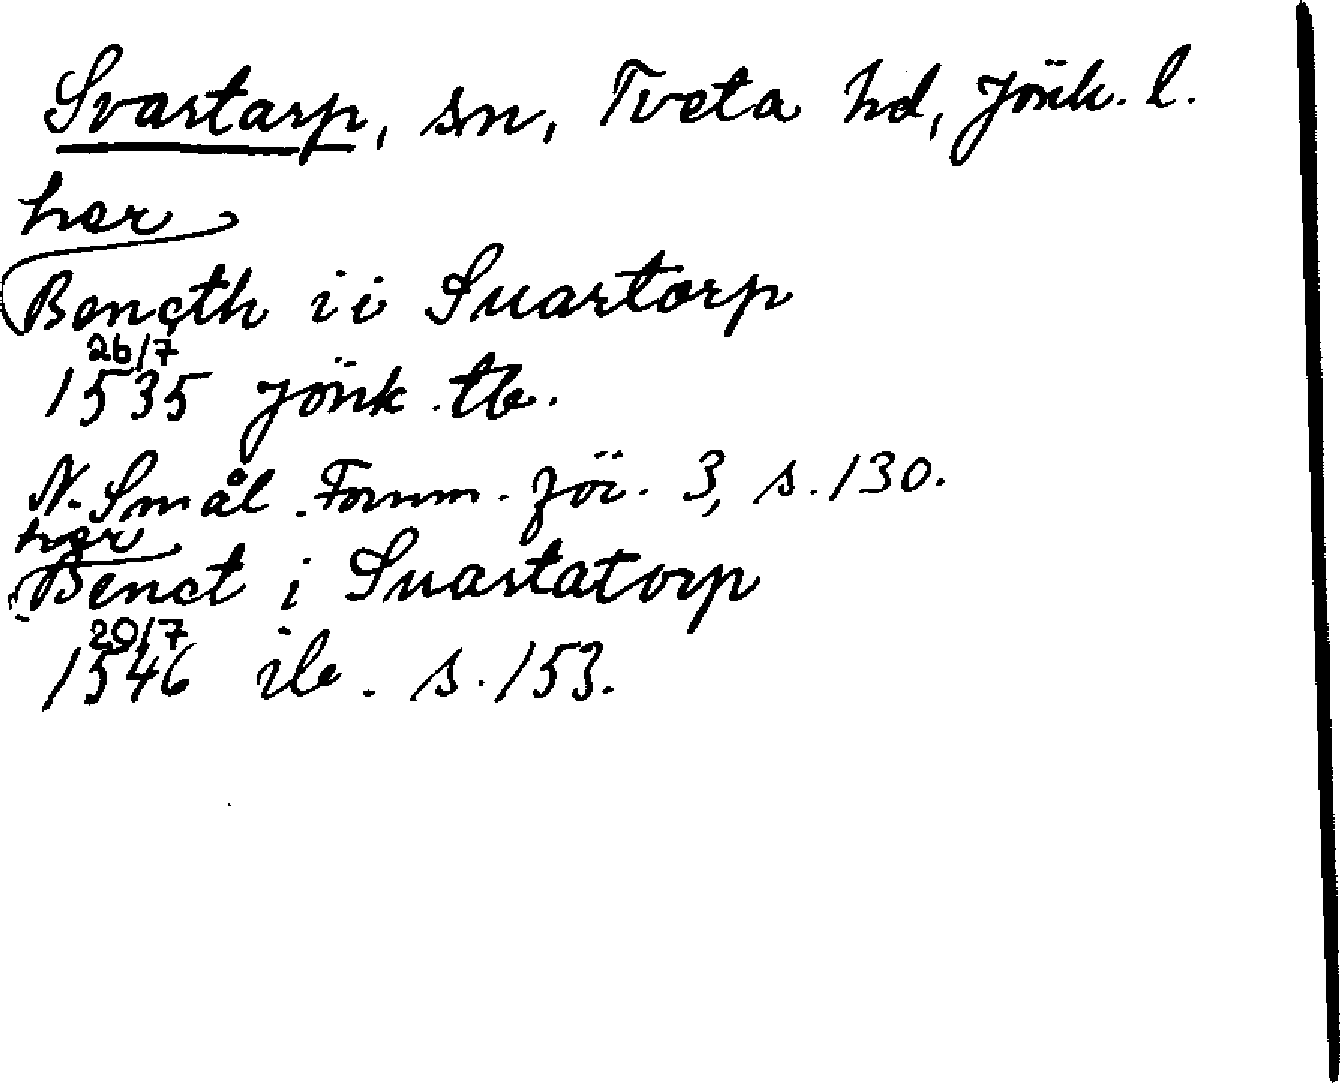 Svartarp, sn, Tveta hd, Jönk. l.
her
Bencth i i Suartorp
26/7
1535 Jönk. tb.
N. Smål. Fornm. för. 3, s. 130.
her
Benct i Suartatorp
20/7
1546 ib. s. 153.